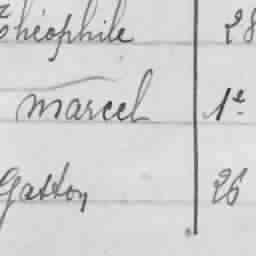 Théophile 28
Marcel 1er
Gaston 26